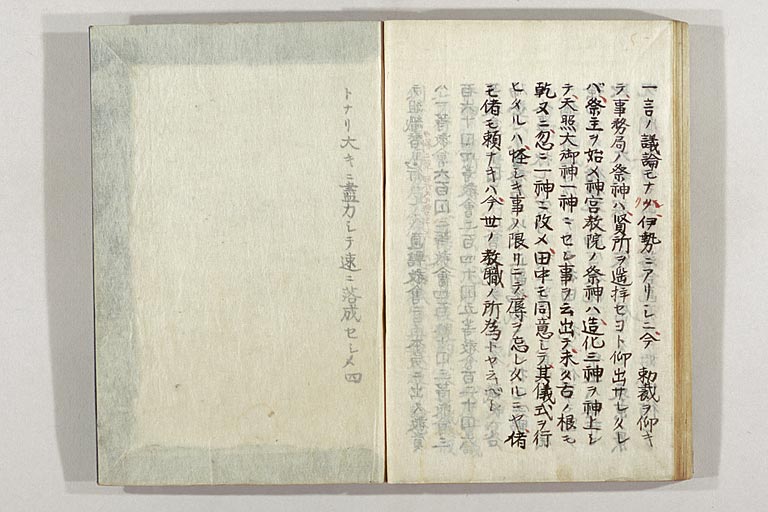 一言ノ議論モナク伊勢ニアリシニ今 勅裁ヲ仰キ
テ事務局ノ祭神ハ賢所ヲ遥拝セヨト仰出サレタレ
バ祭主ヲ始メ神宮教院ノ祭神ハ造化三神ヲ神上シ
テ天照大御神一神ニセシ事ヲ云出テ未タ舌ノ根モ
乾ヌニ忽ニ一神ニ改メ田中モ同意シテ其儀式ヲ行
ヒイルハ怪シキ事ノ限リニテ辱ヲ忘レタルニヤ偖
モ偖モ頼ナキハ今世ノ教職ノ所為トヤ云ベシ
トナリ大キニ盡力シテ速ニ落成セシメ四